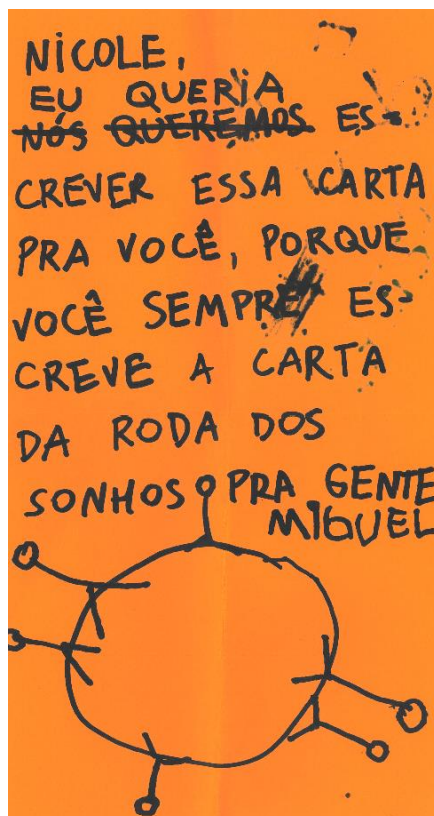 NICOLE,
EU QUERIA
NÓS QUEREMOS ES-
CREVER ESSA CARTA
PRA VOCÊ, PORQUE
VOCÊ SEMPRE ES-
CREVE A CARTA
DA RODA DOS
SONHOS PRA GENTE
MIGUEL